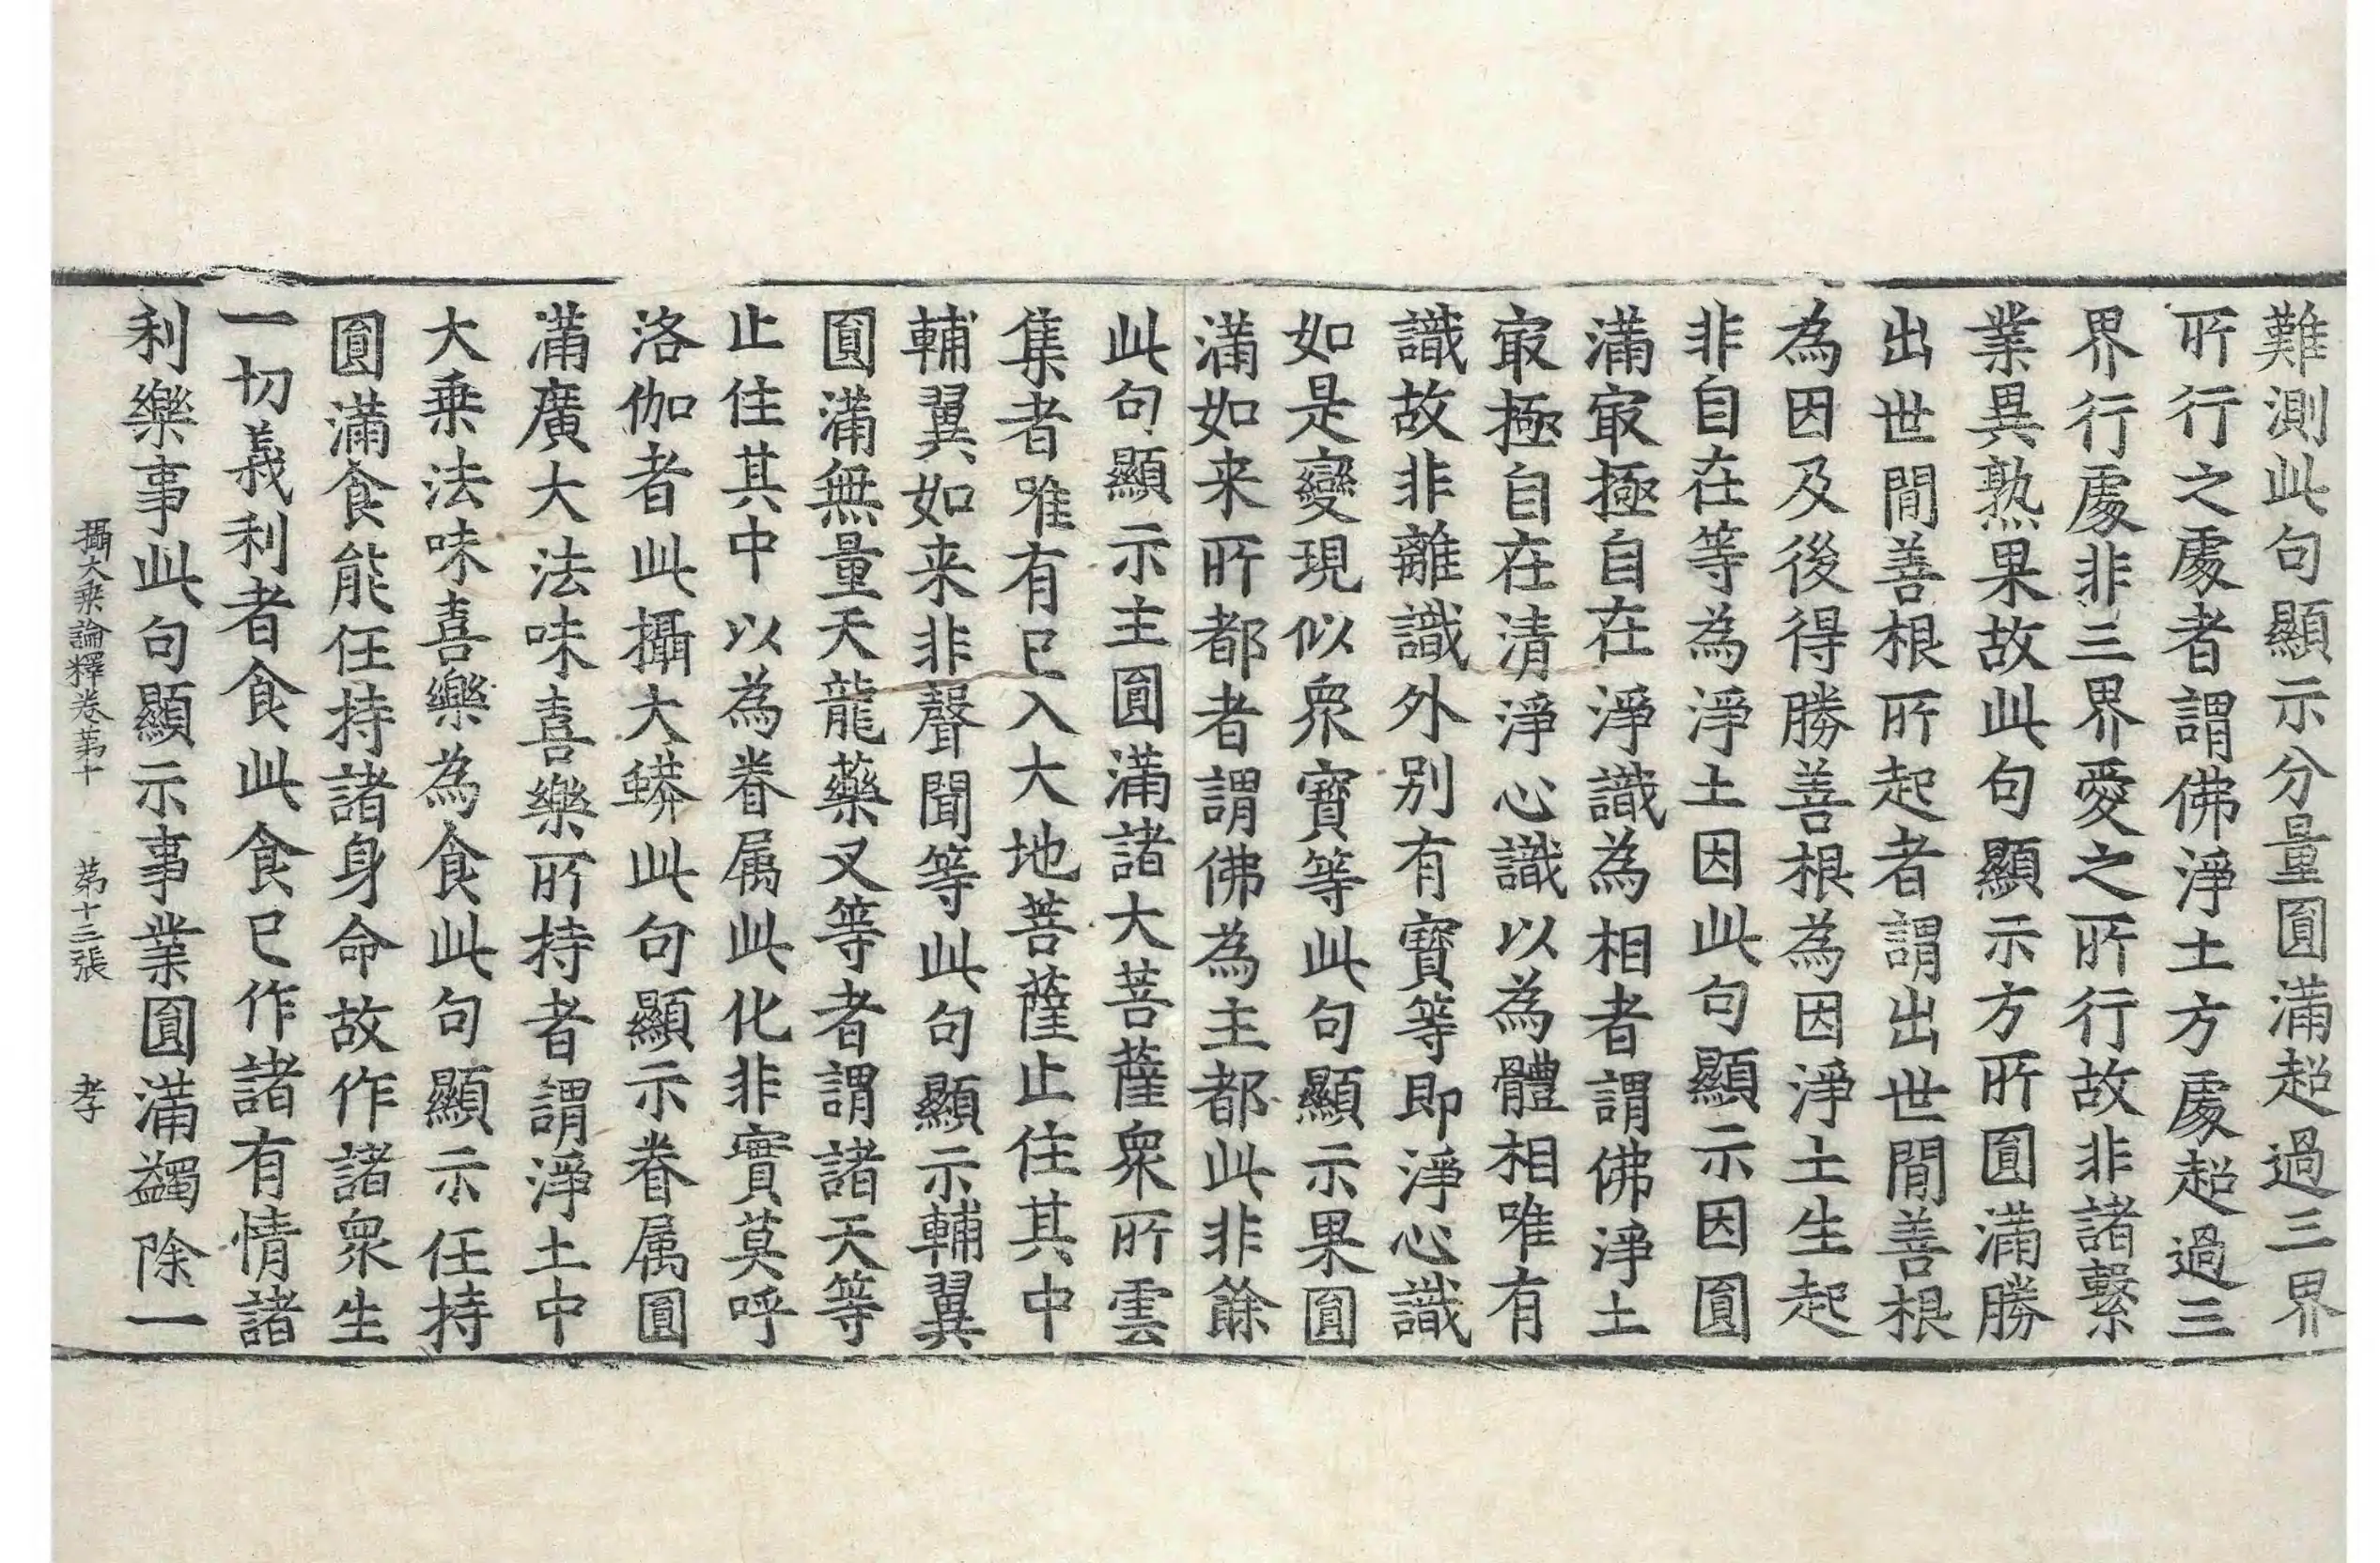 難測此句顯示分量圓滿超過三界
所行之處者謂佛淨土方處超過三
界行處非三界愛之所行故非諸繫
業異熟果故此句顯示方所圓滿勝
出世間善根所起者謂出世間善根
為因及後得勝善根為因淨土生起
非自在等為淨土因此句顯示因圓
滿㝡極自在淨識為相者謂佛淨土
㝡極自在清淨心識以為體相唯有
識故非離識外別有寶等即淨心識
如是變現似衆寶等此句顯示果圓
滿如来所都者謂佛為主都此非餘
此句顯示主圓滿諸大菩薩衆所雲
集者唯有已入大地菩薩止住其中
輔翼如来非聲聞等此句顯示輔翼
圓滿無量天龍藥叉等者謂諸天等
止住其中以為眷属此化非實莫呼
洛伽者此攝大蟒此句顯示眷属圓
滿廣大法味喜樂所持者謂淨土中
大乗法味喜樂為食此句顯示任持
圓滿食能任持諸身命故作諸衆生
一切義利者食此食已作諸有情諸
利樂事此句顯示事業圓滿蠲除一
攝大乗論釋卷第十　第十三張　孝